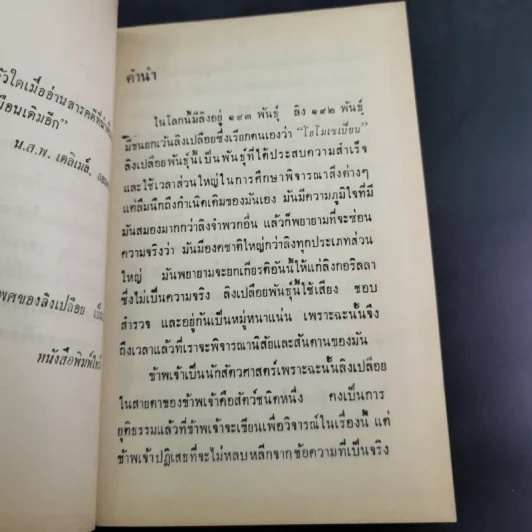 ตัวใดเมื่ออ่านสารคดีที่น่า
เหมือนเดิมอีก”
น.ส.พ. เดลิเมล์,
เพศของลิงเปลือย
หนังสือพิมพ์ไทม์
คำนำ
ในโลกนี้มีลิงอยู่ ๑๙๓ พันธุ์ ลิง ๑๙๒ พันธุ์
มีขนยกเว้นลิงเปลือยซึ่งเรียกตนเองว่า “โฮโมเซเปี้ยน”
ลิงเปลือยพันธุ์นี้เป็นพันธุ์ที่ได้ประสบความสำเร็จ
และใช้เวลาส่วนใหญ่ในการศึกษาพิจารณาสิ่งต่างๆ
แต่ลืมนึกถึงกำเนิดเดิมของมันเอง มันมีความภูมิใจที่มี
มันสมองมากกว่าลิงจำพวกอื่น แล้วก็พยายามที่จะซ่อน
ความจริงว่า มันมีองคชาติใหญ่กว่าลิงทุกประเภทส่วน
ใหญ่ มันพยายามจะยกเกียรติอันนี้ให้แก่ลิงกอริลลา
ซึ่งไม่เป็นความจริง ลิงเปลือยพันธุ์นี้ใช้เสียง ชอบ
สำรวจ และอยู่กันเป็นหมู่หนาแน่น เพราะฉะนั้นจึง
ถึงเวลาแล้วที่เราจะพิจารณานิสัยและสันดานของมัน
ข้าพเจ้าเป็นนักสัตวศาสตร์เพราะฉะนั้นลิงเปลือย
ในสายตาของข้าพเจ้าคือสัตว์ชนิดหนึ่ง คงเป็นการ
ยุติธรรมแล้วที่ข้าพเจ้าจะเขียนเพื่อวิจารณ์ในเรื่องนี้ แต่
ข้าพเจ้าปฏิเสธที่จะไม่หลบหลีกจากข้อความที่เป็นจริง